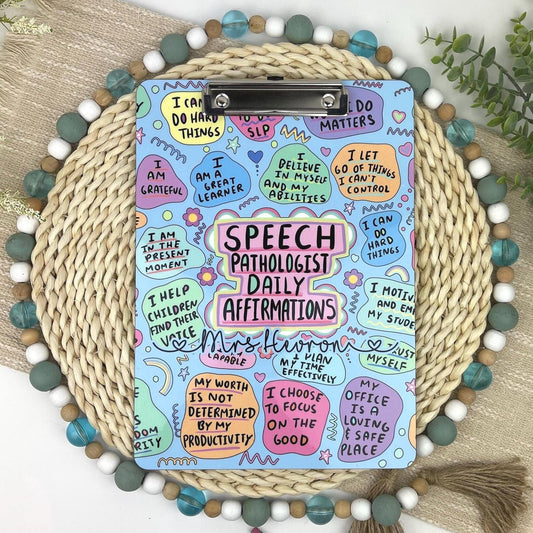 I CAN
DO HARD
THINGS
SLP
DO
MATTERS
I
AM
GRATEFUL
I
AM A
GREAT
LEARNER
I
BELIEVE
IN MYSELF
AND MY
ABILITIES
I LET
GO OF THINGS
I CAN'T
CONTROL
I CAN
DO
HARD
THINGS
I AM
IN THE
PRESENT
MOMENT
SPEECH
PATHOLOGIST
DAILY
AFFIRMATIONS
I HELP
CHILDREN
FIND THEIR
VOICE
I
AND
MY
Mrs Hevron
CAPABLE
I PLAN
MY TIME
EFFECTIVELY
MYSELF
MY WORTH
IS NOT
DETERMINED
BY MY
PRODUCTIVITY
I CHOOSE
TO FOCUS
ON THE
GOOD
MY
OFFICE
IS A
LOVING
& SAFE
PLACE